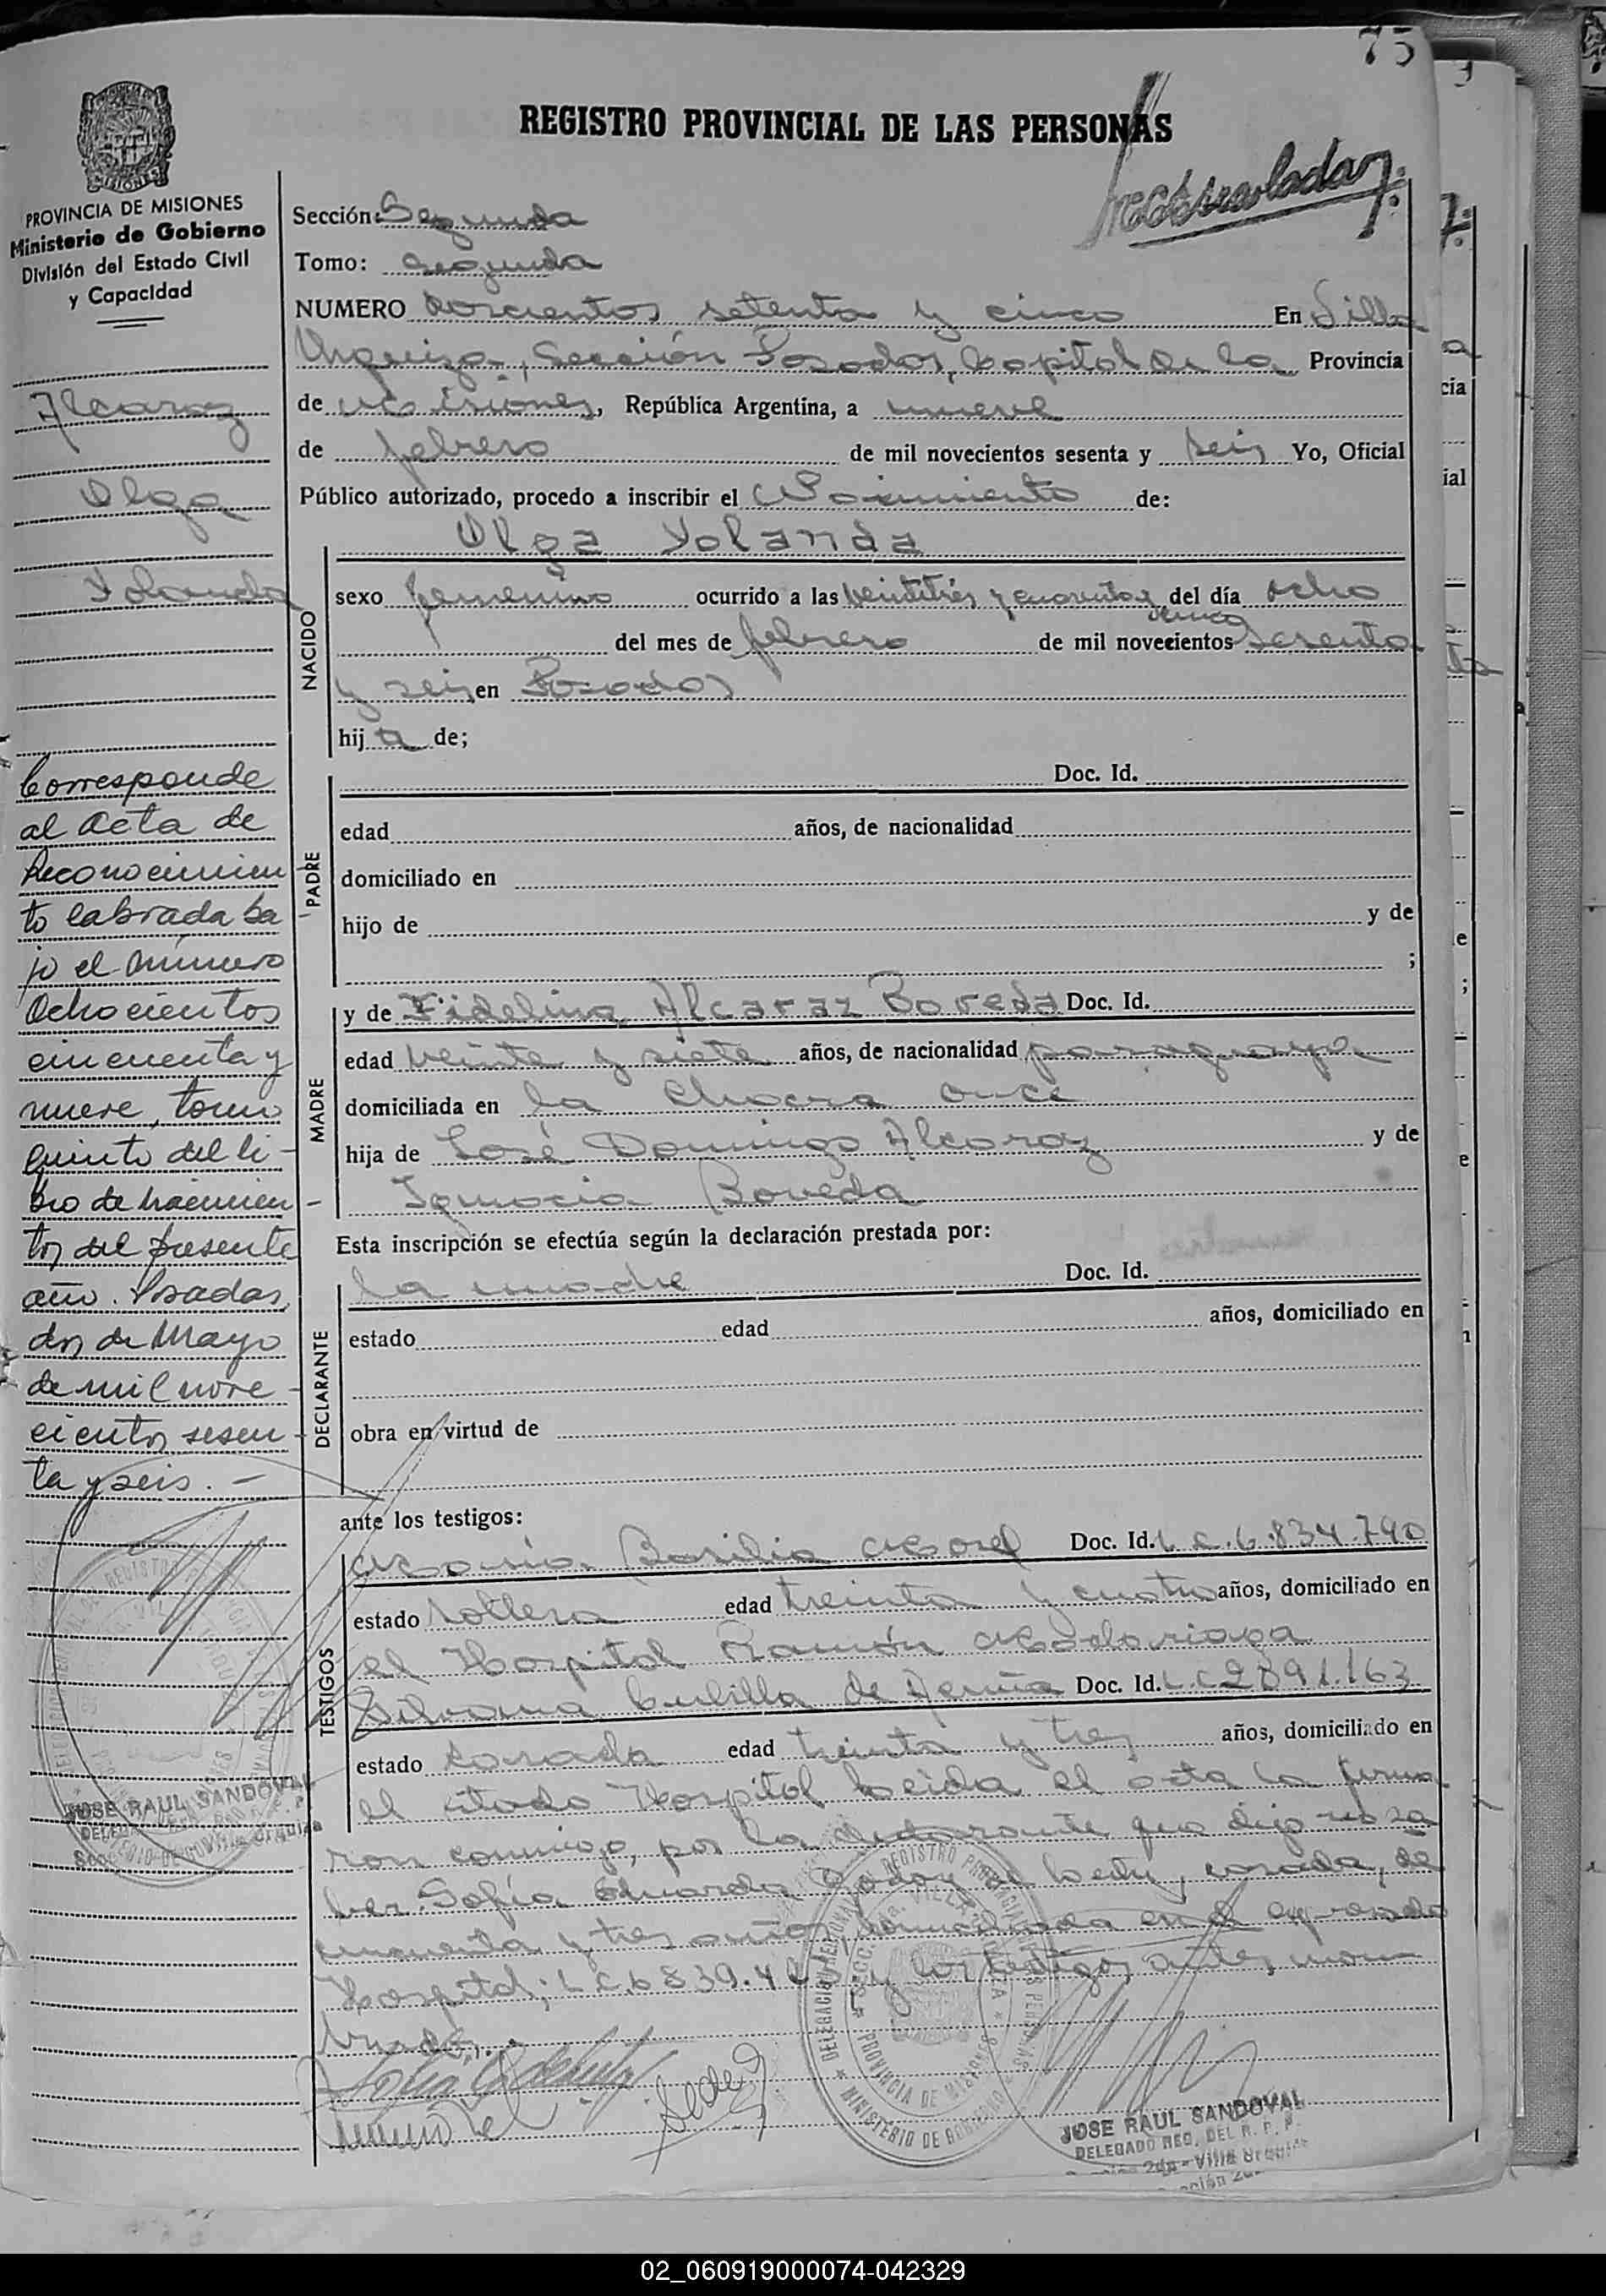 75
REGISTRO PROVINCIAL DE LAS PERSONAS
PROVINCIA DE MISIONES
Ministerio de Gobierno
División del Estado Civil
y Capacidad
Alcaraz
Olga
Yolanda
Corresponde
al Acta de
Reconocimien
to labrada ba
jo el número
Ochocientos
cincuenta y
nueve, tomo
quinto del li-
bro de nacimien-
tos del presente
año. Posadas,
dos de Mayo
de mil nove-
cientos sesen-
ta y seis. -
Sección: Segunda
Tomo: Segundo
NUMERO doscientos setenta y cinco En Villa
Urquiza, Sección Posadas, Capital de la Provincia
de Misiones, República Argentina, a nueve
de febrero de mil novecientos sesenta y seis Yo, Oficial
Público autorizado, procedo a inscribir el Nacimiento de:
Olga Yolanda
NACIDO
sexo femenino ocurrido a las veintitrés y cuarenta y del día ocho
cinco
del mes de febrero de mil novecientos sesenta
y seis en Posadas
hij a de;
PADRE
Doc. Id.
edad años, de nacionalidad
domiciliado en
hijo de y de
;
MADRE
y de Fidelina Alcaraz Boveda Doc. Id.
edad veinte y siete años, de nacionalidad paraguaya
domiciliada en la Chacra once
hija de José Domingo Alcaraz y de
Ignacia Boveda
Esta inscripción se efectúa según la declaración prestada por:
DECLARANTE
la madre Doc. Id.
estado edad años, domiciliado en
obra en virtud de
ante los testigos:
TESTIGOS
Basilia Doc. Id. L.C. 6.834.790
estado soltera edad treinta y cuatro años, domiciliado en
el Hospital Ramón Madariaga
Silvana de Doc. Id. L.C
estado casada edad treinta y tres años, domiciliado en
el citado Hospital Leida el acta la firma
ron conmigo, por la declarante que dijo no sa
ber. Sofía Eduarda Godoy de casada, de
cincuenta y tres años, domiciliada en el expresado
Hospital; L.C. y los testigos antes mon
brados.
JOSE RAUL SANDOVAL
JOSE RAUL SANDOVAL
DELEGADO REG. DEL R. P. P.
Sección 2da - Villa Urquiza
02_060919000074-042329